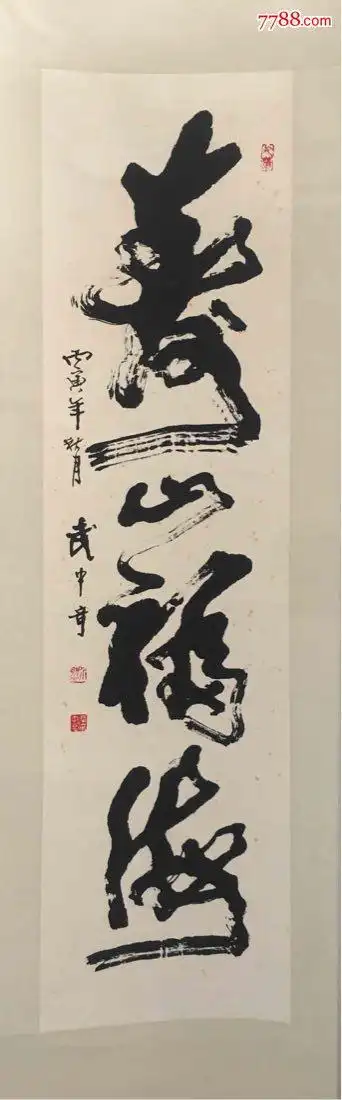 7788.com
寿山福海
丙寅年秋月
武中奇